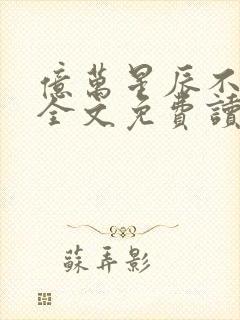 億萬星辰不
全文免費讀
蘇弄影